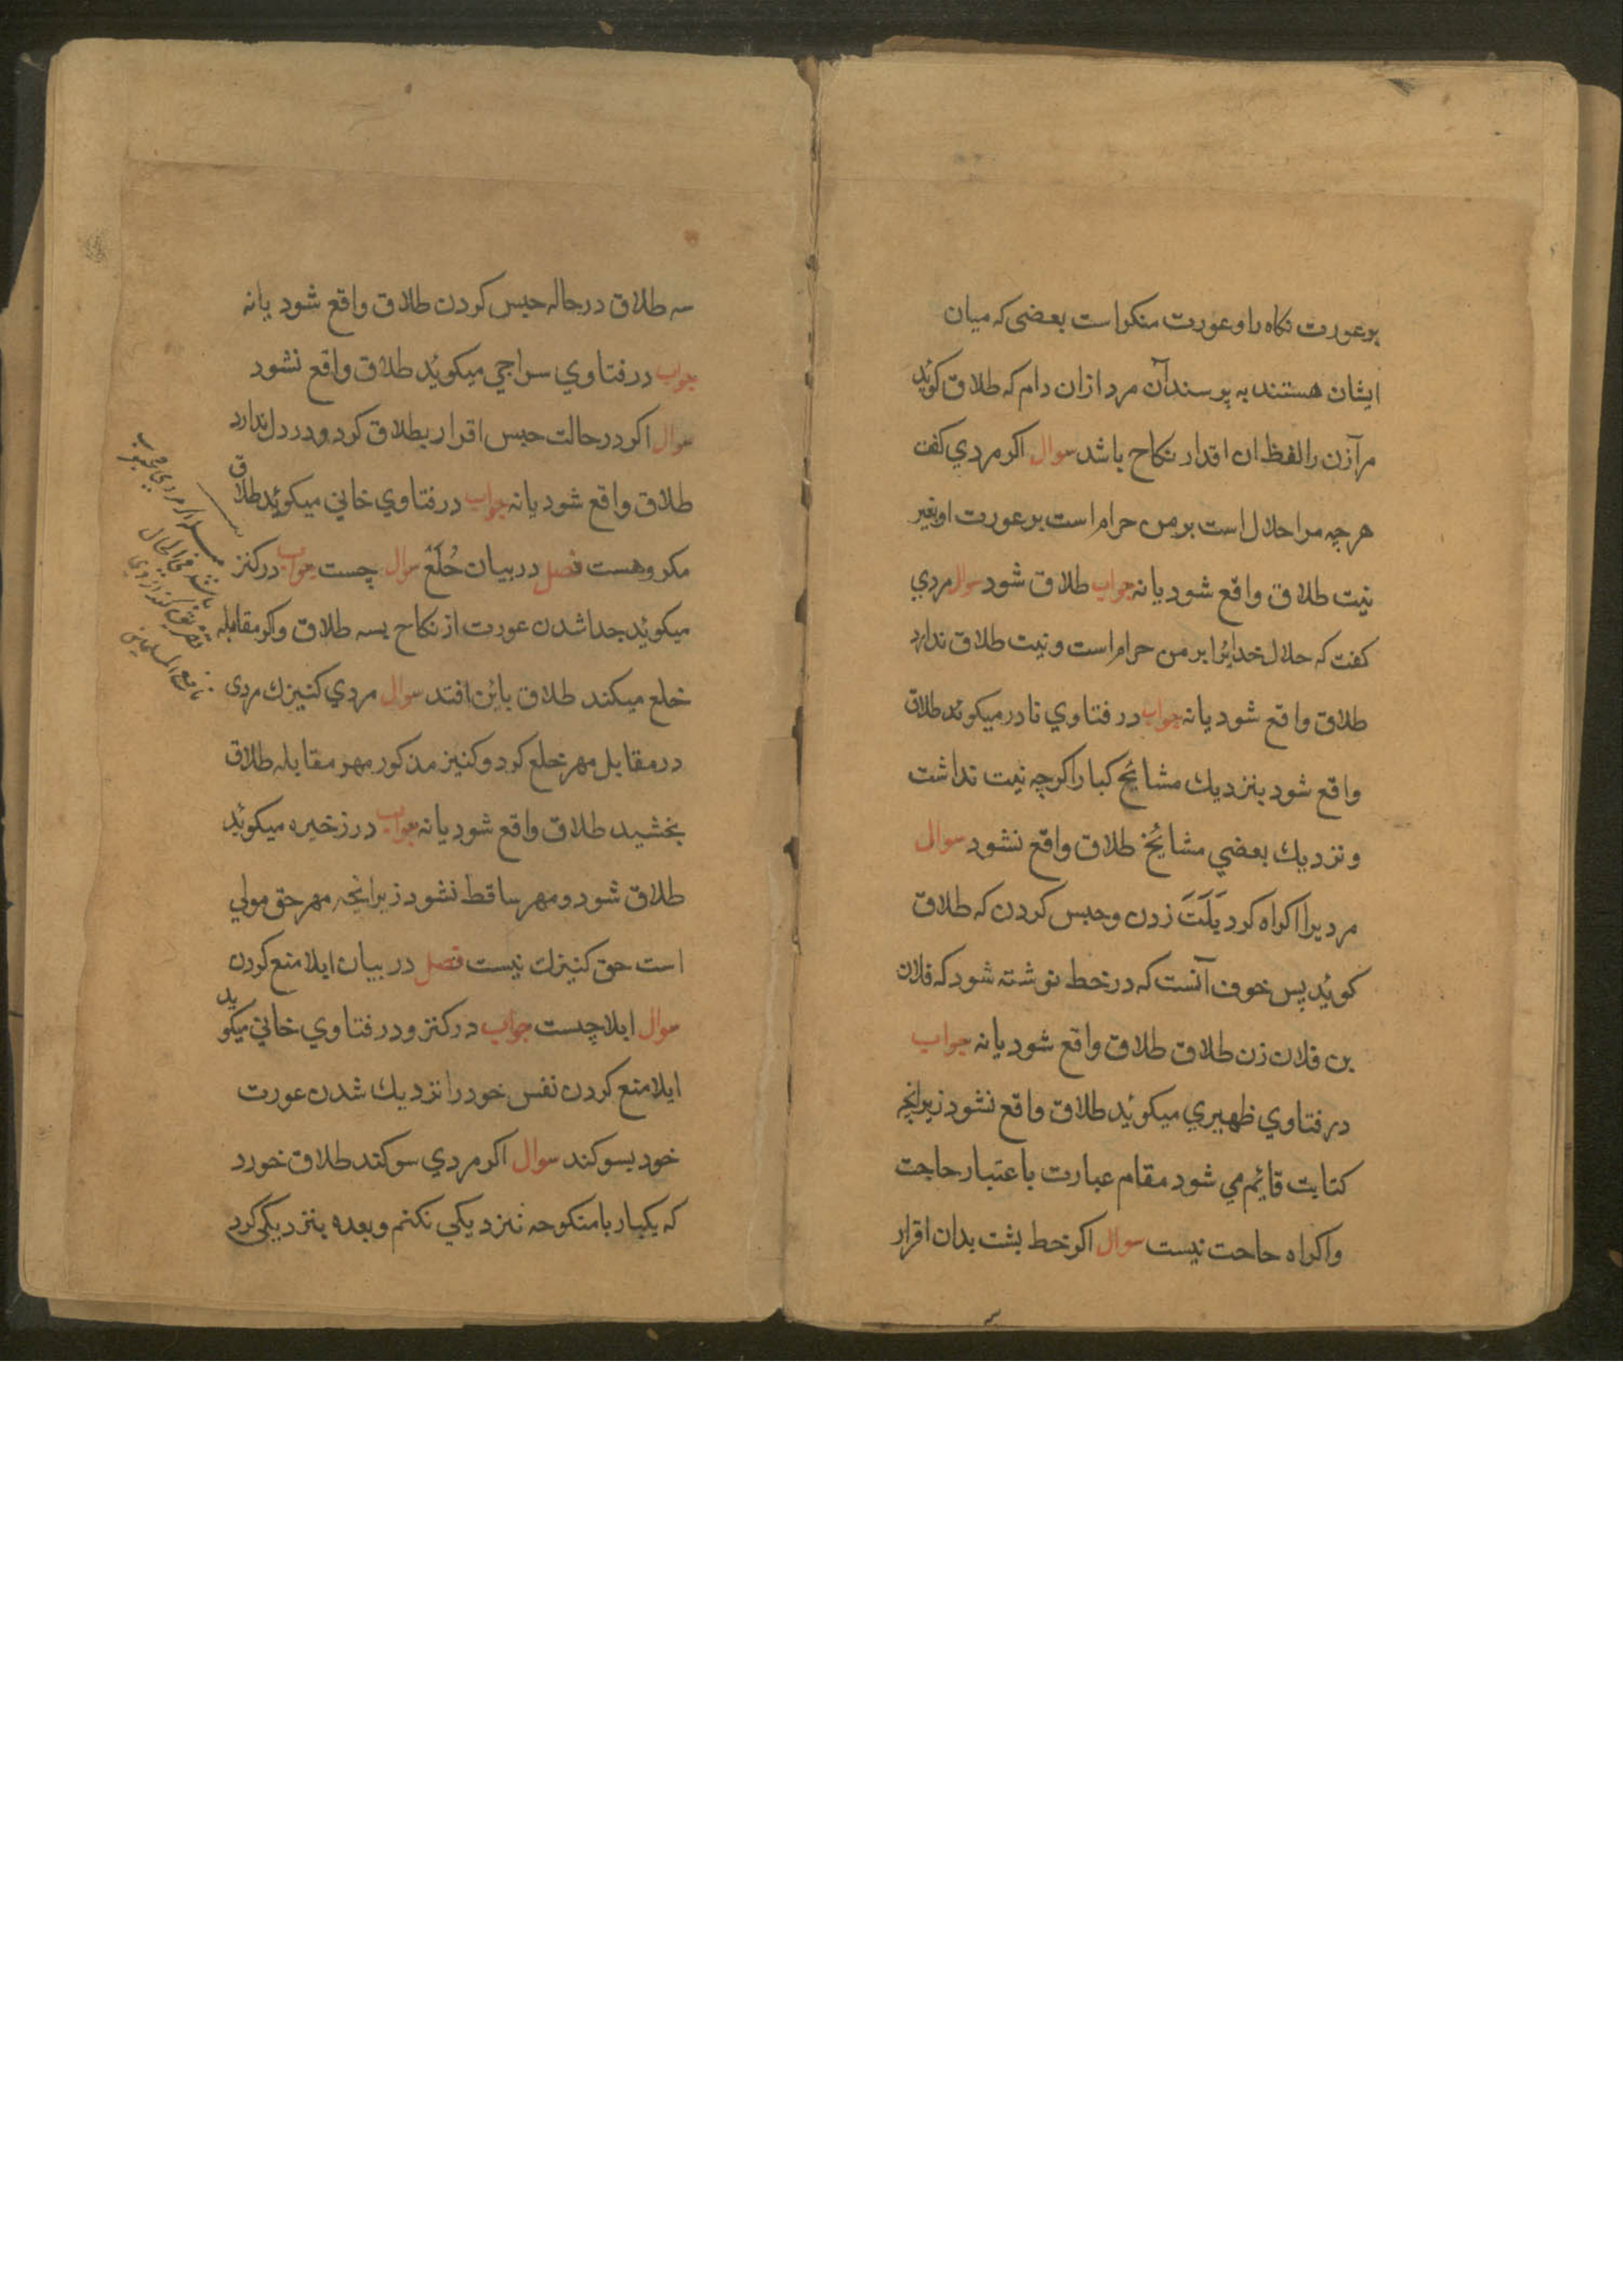 بر عورت نکاه را و عورت منکر است بعضی که میان
ایشان هستند به پرسند آن مرد ازان دام که طلاق کوئید
مر آزن را لفظ ان اقدار نکاح باشد سوال اکر مردي کفت
هر چه مرا حلال است بر من حرام است بر عورت او بغیر
نیت طلاق واقع شود یا نه جواب طلاق شود سوال مردي
کفت که حلال خدایرا بر من حرام است و نیت طلاق ندارد
طلاق واقع شود یا نه جواب در فتاوي نادر میکوئد طلاق
واقع شود بنزدیك مشائخ کبار اکرچه نیت نداشت
و نزدیك بعضي مشائخ طلاق واقع نشود سوال
مردیرا اکراه کرد یَلَتَ زدن و حبس کردن که طلاق
کوئید پس خوف آنست که در خط نوشته شود که فلان
بن فلان زن طلاق طلاق واقع شود یا نه جواب
در فتاوي ظهیري میکوئید طلاق واقع نشود زیرانچه
کتابت قائیم مي شود مقام عبارت باعتبار حاجت
و اکراه حاجت نیست سوال اکر خط بشت بدان اقرار
سه طلاق در حاله حبس کردن طلاق واقع شود یا نه
جواب در فتاوي سراجي میکوئید طلاق واقع نشود
سوال اکر در حالت حبس اقرار بطلاق کرد و در دل ندارد
طلاق واقع شود یا نه جواب در فتاوي خاني میکوئید طلاق
مکروهست فصل در بیان خُلَعْ سوال چست جواب در کنز
میکوئید جدا شدن عورت از نکاح بسه طلاق و اکر مقابله
خلع میکند طلاق بائن افتد سوال مردي کنیزك مردی
در مقابل مهر خلع کرد و کنیز مذکور مهر مقابله طلاق
بخشید طلاق واقع شود یا نه جواب در زخیره میکوئید
طلاق شود و مهر ساقط نشود زیرانچه مهر حق مولي
است حق کنیزك نیست فصل در بیان ایلا منع کردن
سوال ایلا چست جواب در کنز و در فتاوي خاني میکوید
ایلا منع کردن نفس خود را نزدیك شدن عورت
خود بسوکند سوال اکر مردي سوکند طلاق خورد
که یکبار با منکوحه نزدیکي نکنم و بعده بنزدیکي کرد